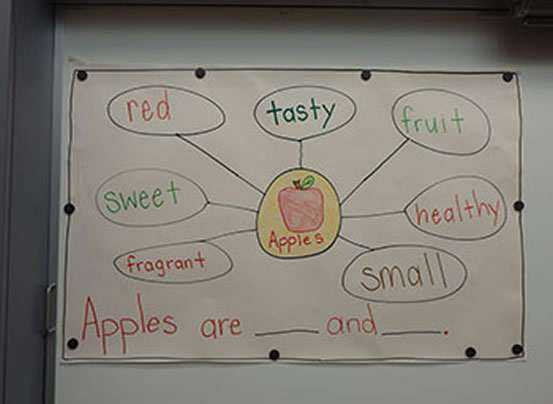 red
tasty
fruit
sweet
healthy
Apples
fragrant
small
Apples are ____ and ____.